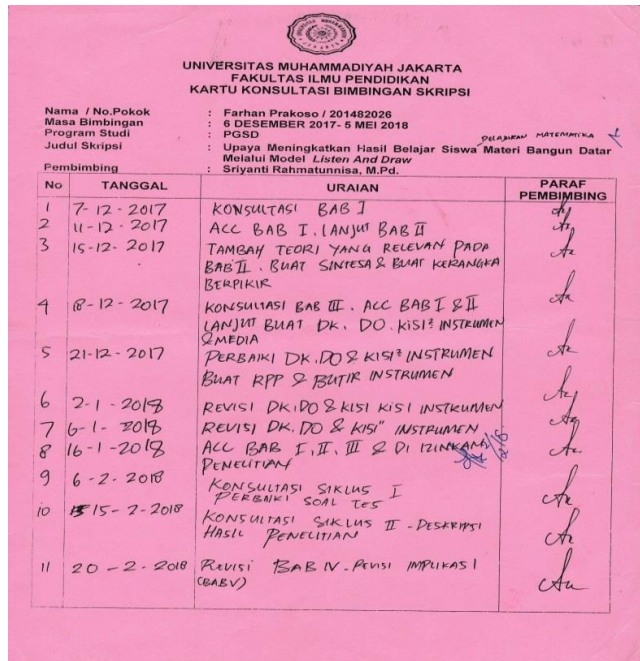 UNIVERSITAS MUHAMMADIYAH JAKARTA
FAKULTAS ILMU PENDIDIKAN
KARTU KONSULTASI BIMBINGAN SKRIPSI
Nama / No.Pokok : Farhan Prakoso / 201482026
Masa Bimbingan : 6 DESEMBER 2017- 5 MEI 2018
Program Studi : PGSD
PELAJARAN MATEMATIKA
Judul Skripsi : Upaya Meningkatkan Hasil Belajar Siswa Materi Bangun Datar
Melalui Model Listen And Draw
Pembimbing : Sriyanti Rahmatunnisa, M.Pd.
No TANGGAL URAIAN PARAF PEMBIMBING
1 7-12-2017 KONSULTASI BAB I
2 11-12-2017 ACC BAB I. LANJUT BAB II
3 15-12-2017 TAMBAH TEORI YANG RELEVAN PADA
BAB II. BUAT SINTESA & BUAT KERANGKA
BERPIKIR
4 18-12-2017 KONSULTASI BAB III. ACC BAB I & II
LANJUT BUAT DK. DO. KISI² INSTRUMEN
& MEDIA
5 21-12-2017 PERBAIKI DK. DO & KISI² INSTRUMEN
BUAT RPP & BUTIR INSTRUMEN
6 2-1-2018 REVISI DK. DO & KISI KISI INSTRUMEN
7 6-1-2018 REVISI DK. DO & KISI" INSTRUMEN
8 16-1-2018 ACC BAB I, II, III & DI IZINKAN
PENELITIAN
9 6-2-2018 KONSULTASI SIKLUS I
PERBAIKI SOAL TES
10 15-2-2018 KONSULTASI SIKLUS II - DESKRIPSI
HASIL PENELITIAN
11 20-2-2018 REVISI BAB IV - REVISI IMPLIKASI
(BAB V)